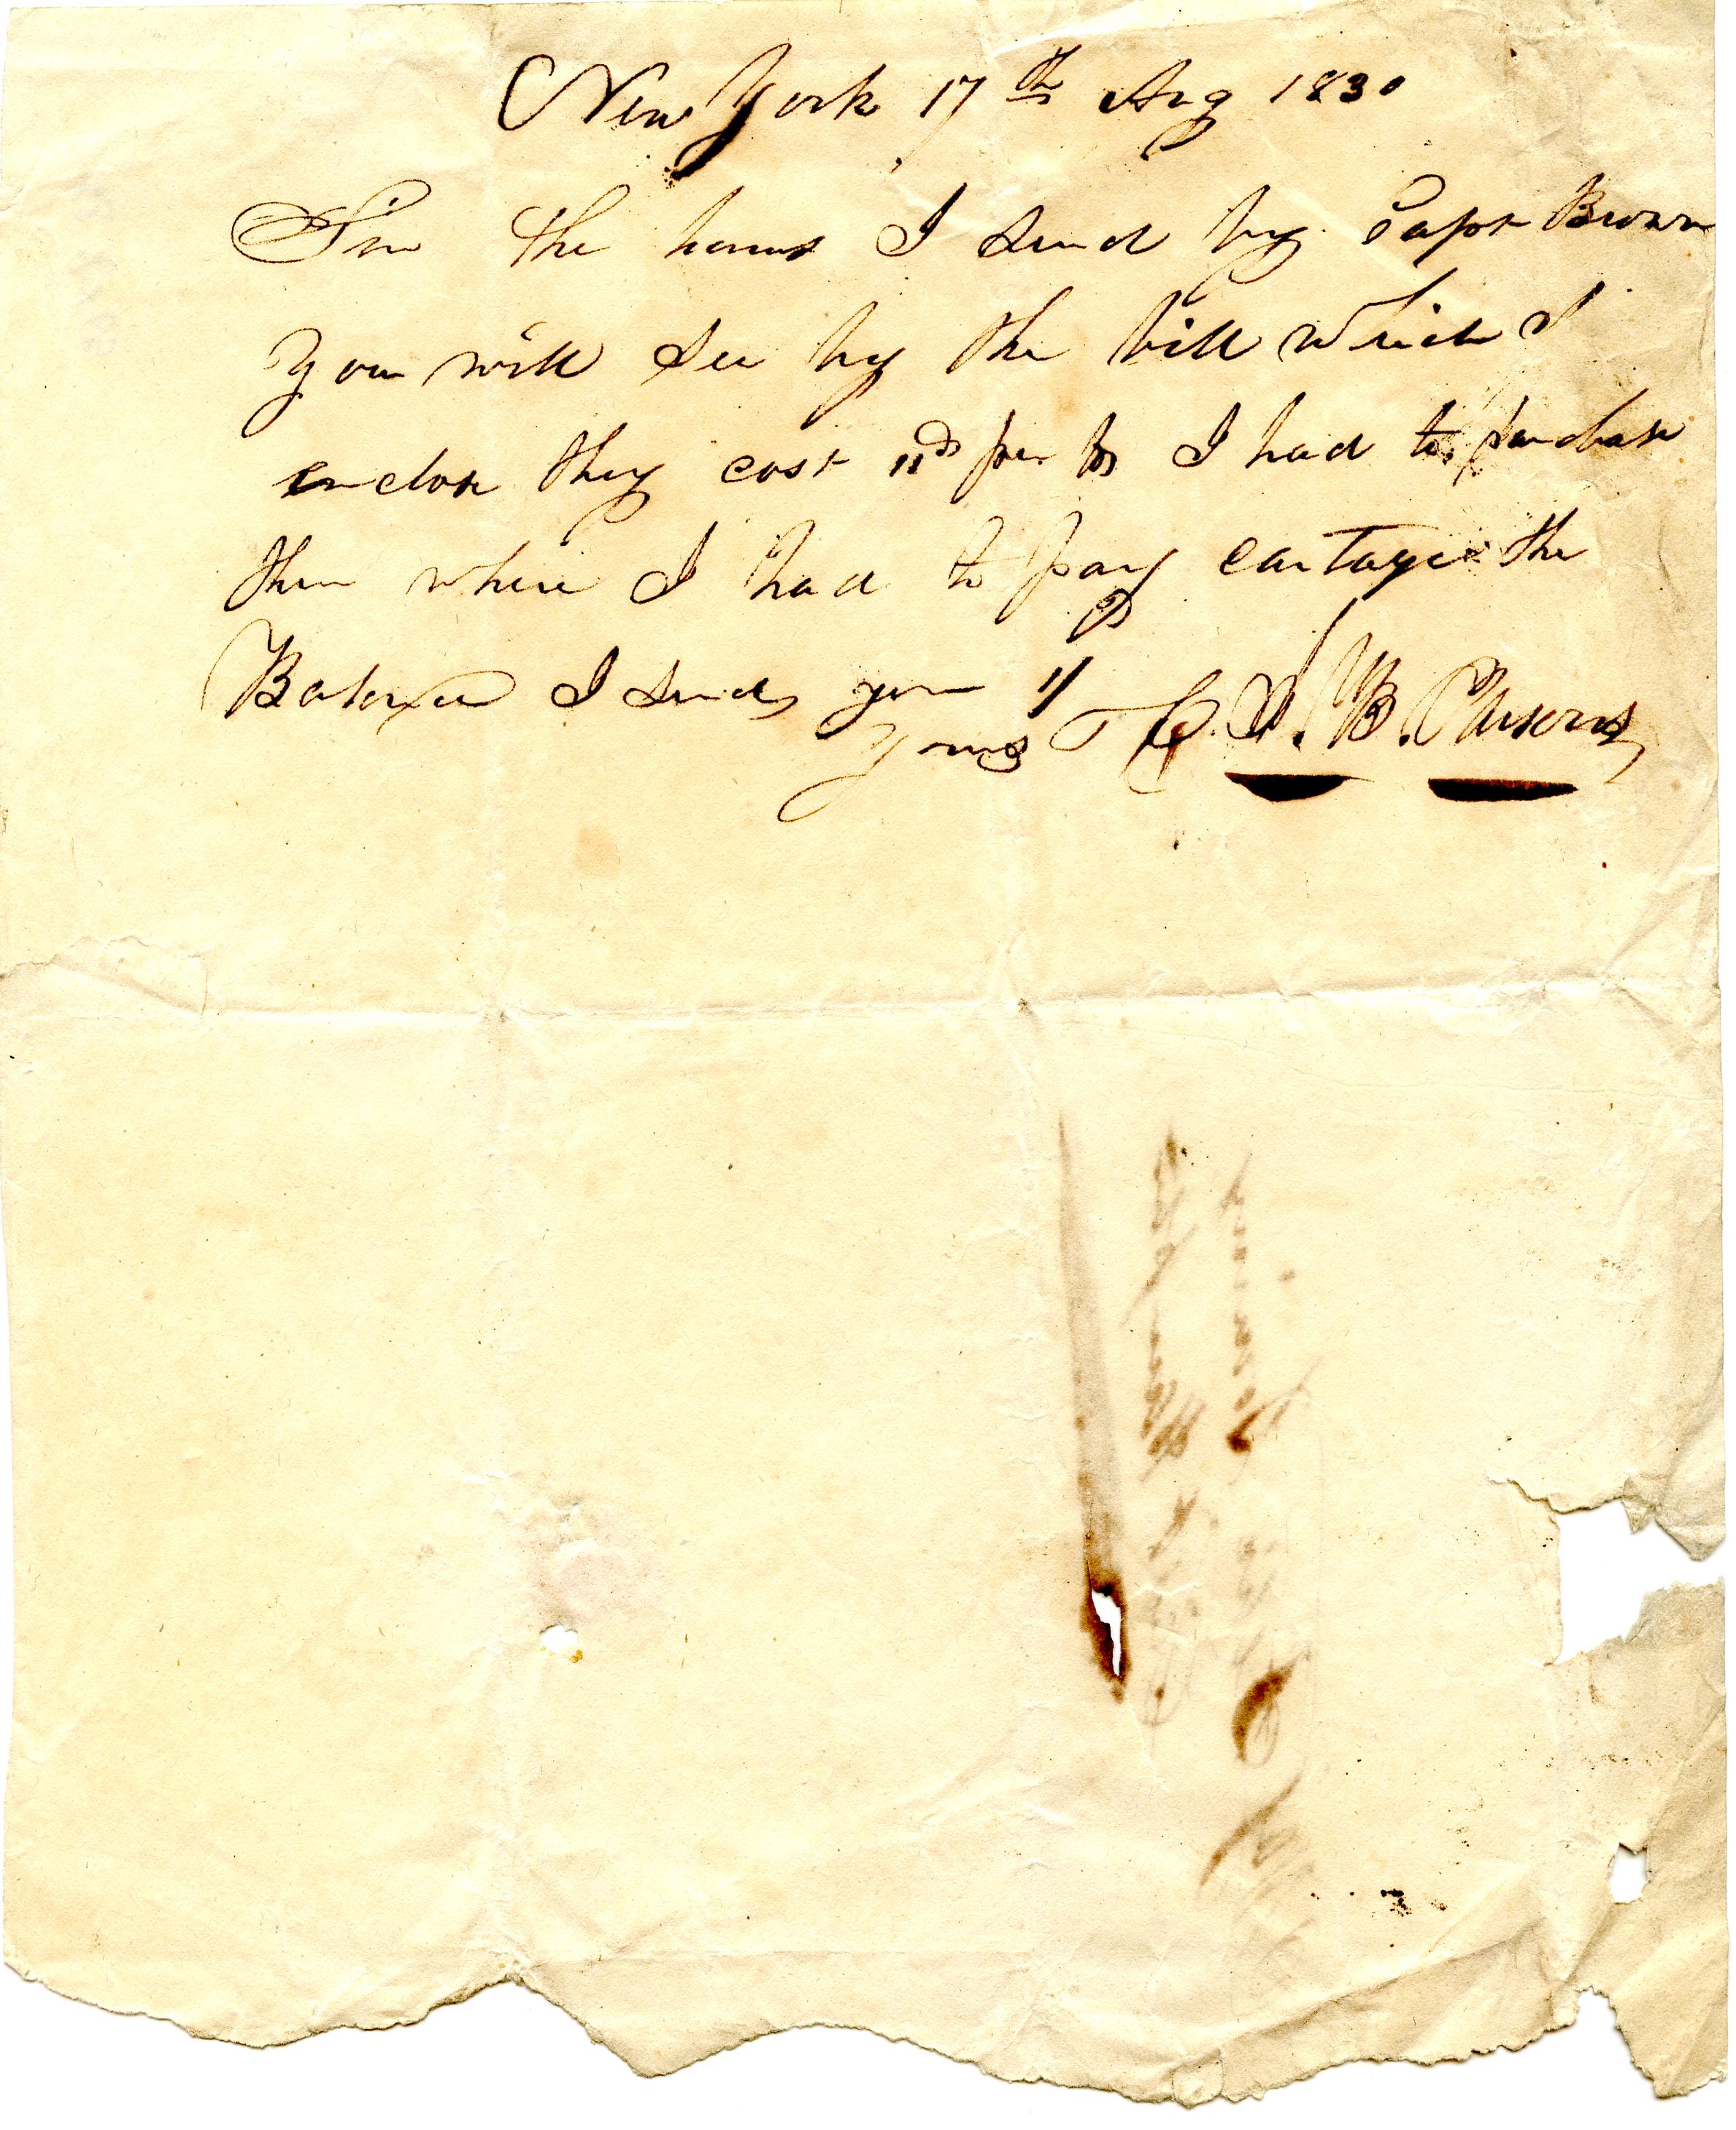 New York 17th Aug 1830
Sir the hams I send by Capt Brown
you will see by the bill which I
enclose they cost 11d per lb I had to purchase
them where I had to pay cartage the
Balance I send you
Yours B. Parsons